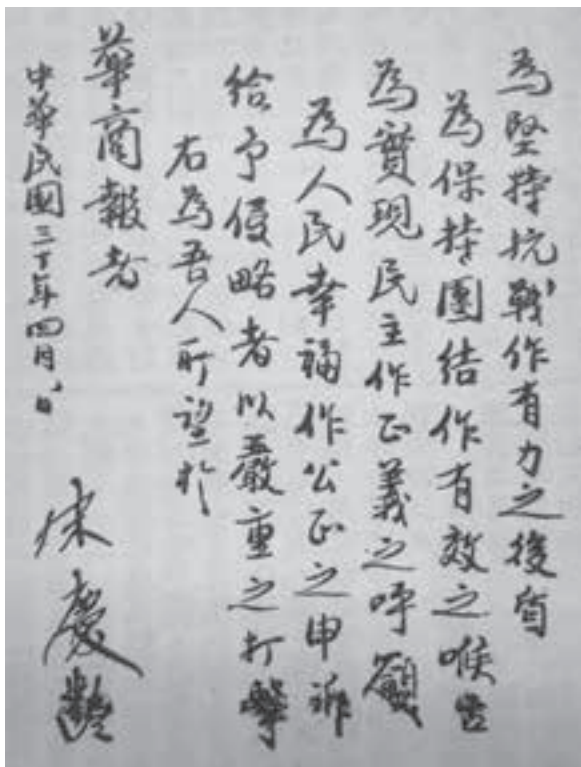 為堅持抗戰作有力之後盾
為保持團結作有效之喉舌
為實現民主作正義之呼籲
為人民幸福作公正之申訴
給予侵略者以嚴重之打擊
右為吾人所望於
華商報者
中華民國三十年四月 日
宋慶齡